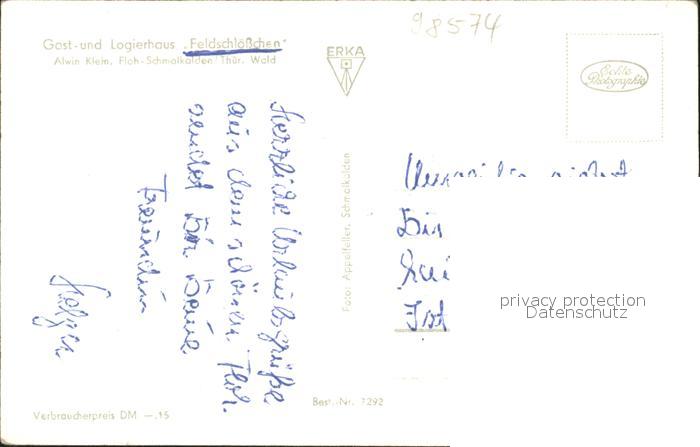 98574
Gast-und Logierhaus „Feldschlößchen"
Alwin Klein, Floh-Schmalkalden/Thür. Wald
ERKA
Echte
Photographie
Herzliche Urlaubsgrüße
aus dem schönen Thür.
sendet Dir Deine
Freundin
Foto: Appelfeller, Schmalkalden
privacy protection
Datenschutz
Best.-Nr. 7292
Verbraucherpreis DM —.15